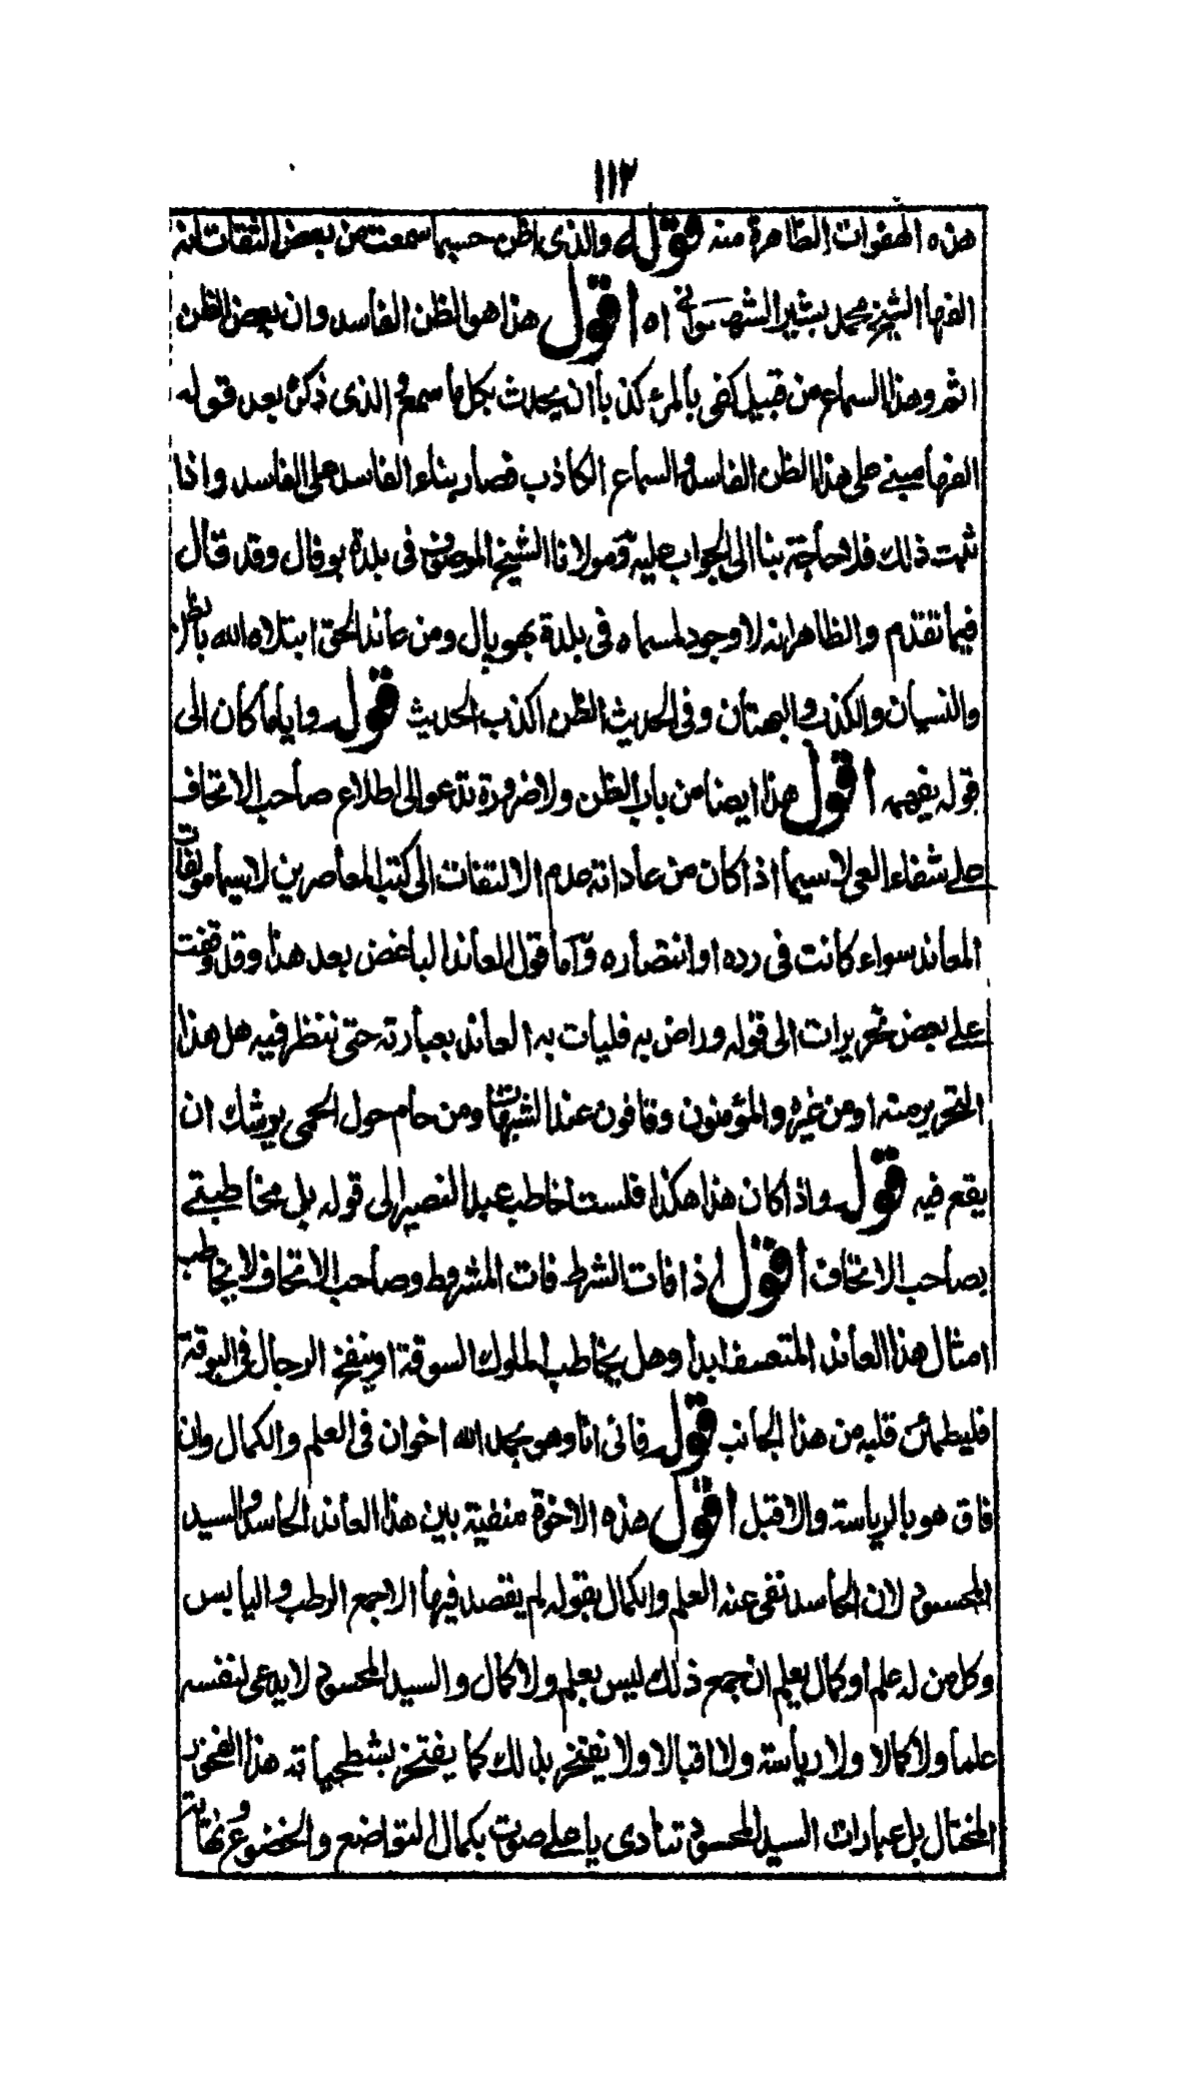 ١١٢
هذه الهفوات الظاهرة منه قوله والذى اظن حسبما سمعت من بعض الثقات انه
الفها الشيخ محمد بشير السهسوانى اه اقول هذا هو الظن الفاسد وان بعض الظن
اثم وهذا السماع من قبيل كفى بالمرء كذبا ان يحدث بكل ما سمع والذى ذكره بعد قوله
الفها مبنے على هذا الظن الفاسد والسماع الكاذب فصار بناء الفاسد على الفاسد واذا
ثبت ذلك فلا حاجة بنا الى الجواب عليه ومولانا الشيخ الموصوف فى بلدة بوفال وقد قال
فيما تقدم والظاهر انه لا وجود لمسماه فى بلدة بهوپال ومن عاند الحق ابتلاه الله
والنسيان والكذب والبهتان وفى الحديث الظن اكذب الحديث قوله وايا ما كان الى
قوله يفهمه اقول هذا ايضا من باب الظن ولا ضرورة تدعو الى اطلاع صاحب الاتحاف
على شفاء العى لا سيما اذا كان من عاداته عدم الالتفات الى كتب المعاصرين لا سيما مؤلفات
المعاند سواء كانت فى رده او انتصاره واما قول المعاند الباغض بعد هذا وقد وقفت
على بعض تحريرات الى قوله وراض به فليات به العاند بعبارته حتى ننظر فيه هل هذا
التحرير منه او من غيره والمؤمنون وقافون عند الشبهات ومن حام حول الحمى يوشك ان
يقع فيه قوله واذا كان هذا هكذا فلست اخاطب عبد النصير الى قوله بل مخاطبتے
بصاحب الاتحاف اقول اذا فات الشرط فات المشروط وصاحب الاتحاف لا يخاطب
امثال هذا العاند المتعسف ابدا وهل يخاطب الملوك السوقة او ينفخ الرجال فى البوقة
فليطمئن قلبه من هذا الجانب قوله فانى انا وهو بحمد الله اخوان فى العلم والكمال وان
فاق هو بالرياسة والاقبل اقول هذه الاخوة منفية بين هذا العاند الحاسد والسيد
المحسود لان الحاسد نفى عنه العلم والكمال بقوله لم يقصد فيها الا جمع الرطب واليابس
وكل من له علم او كمال يعلم ان جمع ذلك ليس بعلم ولا كمال والسيد المحسود لا يدعى لنفسه
علما ولا كمالا ولا رياسة ولا اقبالا ولا يفتخر بذلك كما يفتخر بشطحياته هذا الفخور
المختال بل عبارات السيد المحسود تنادى باعلے صوت بكمال التواضع والخضوع ونهاية